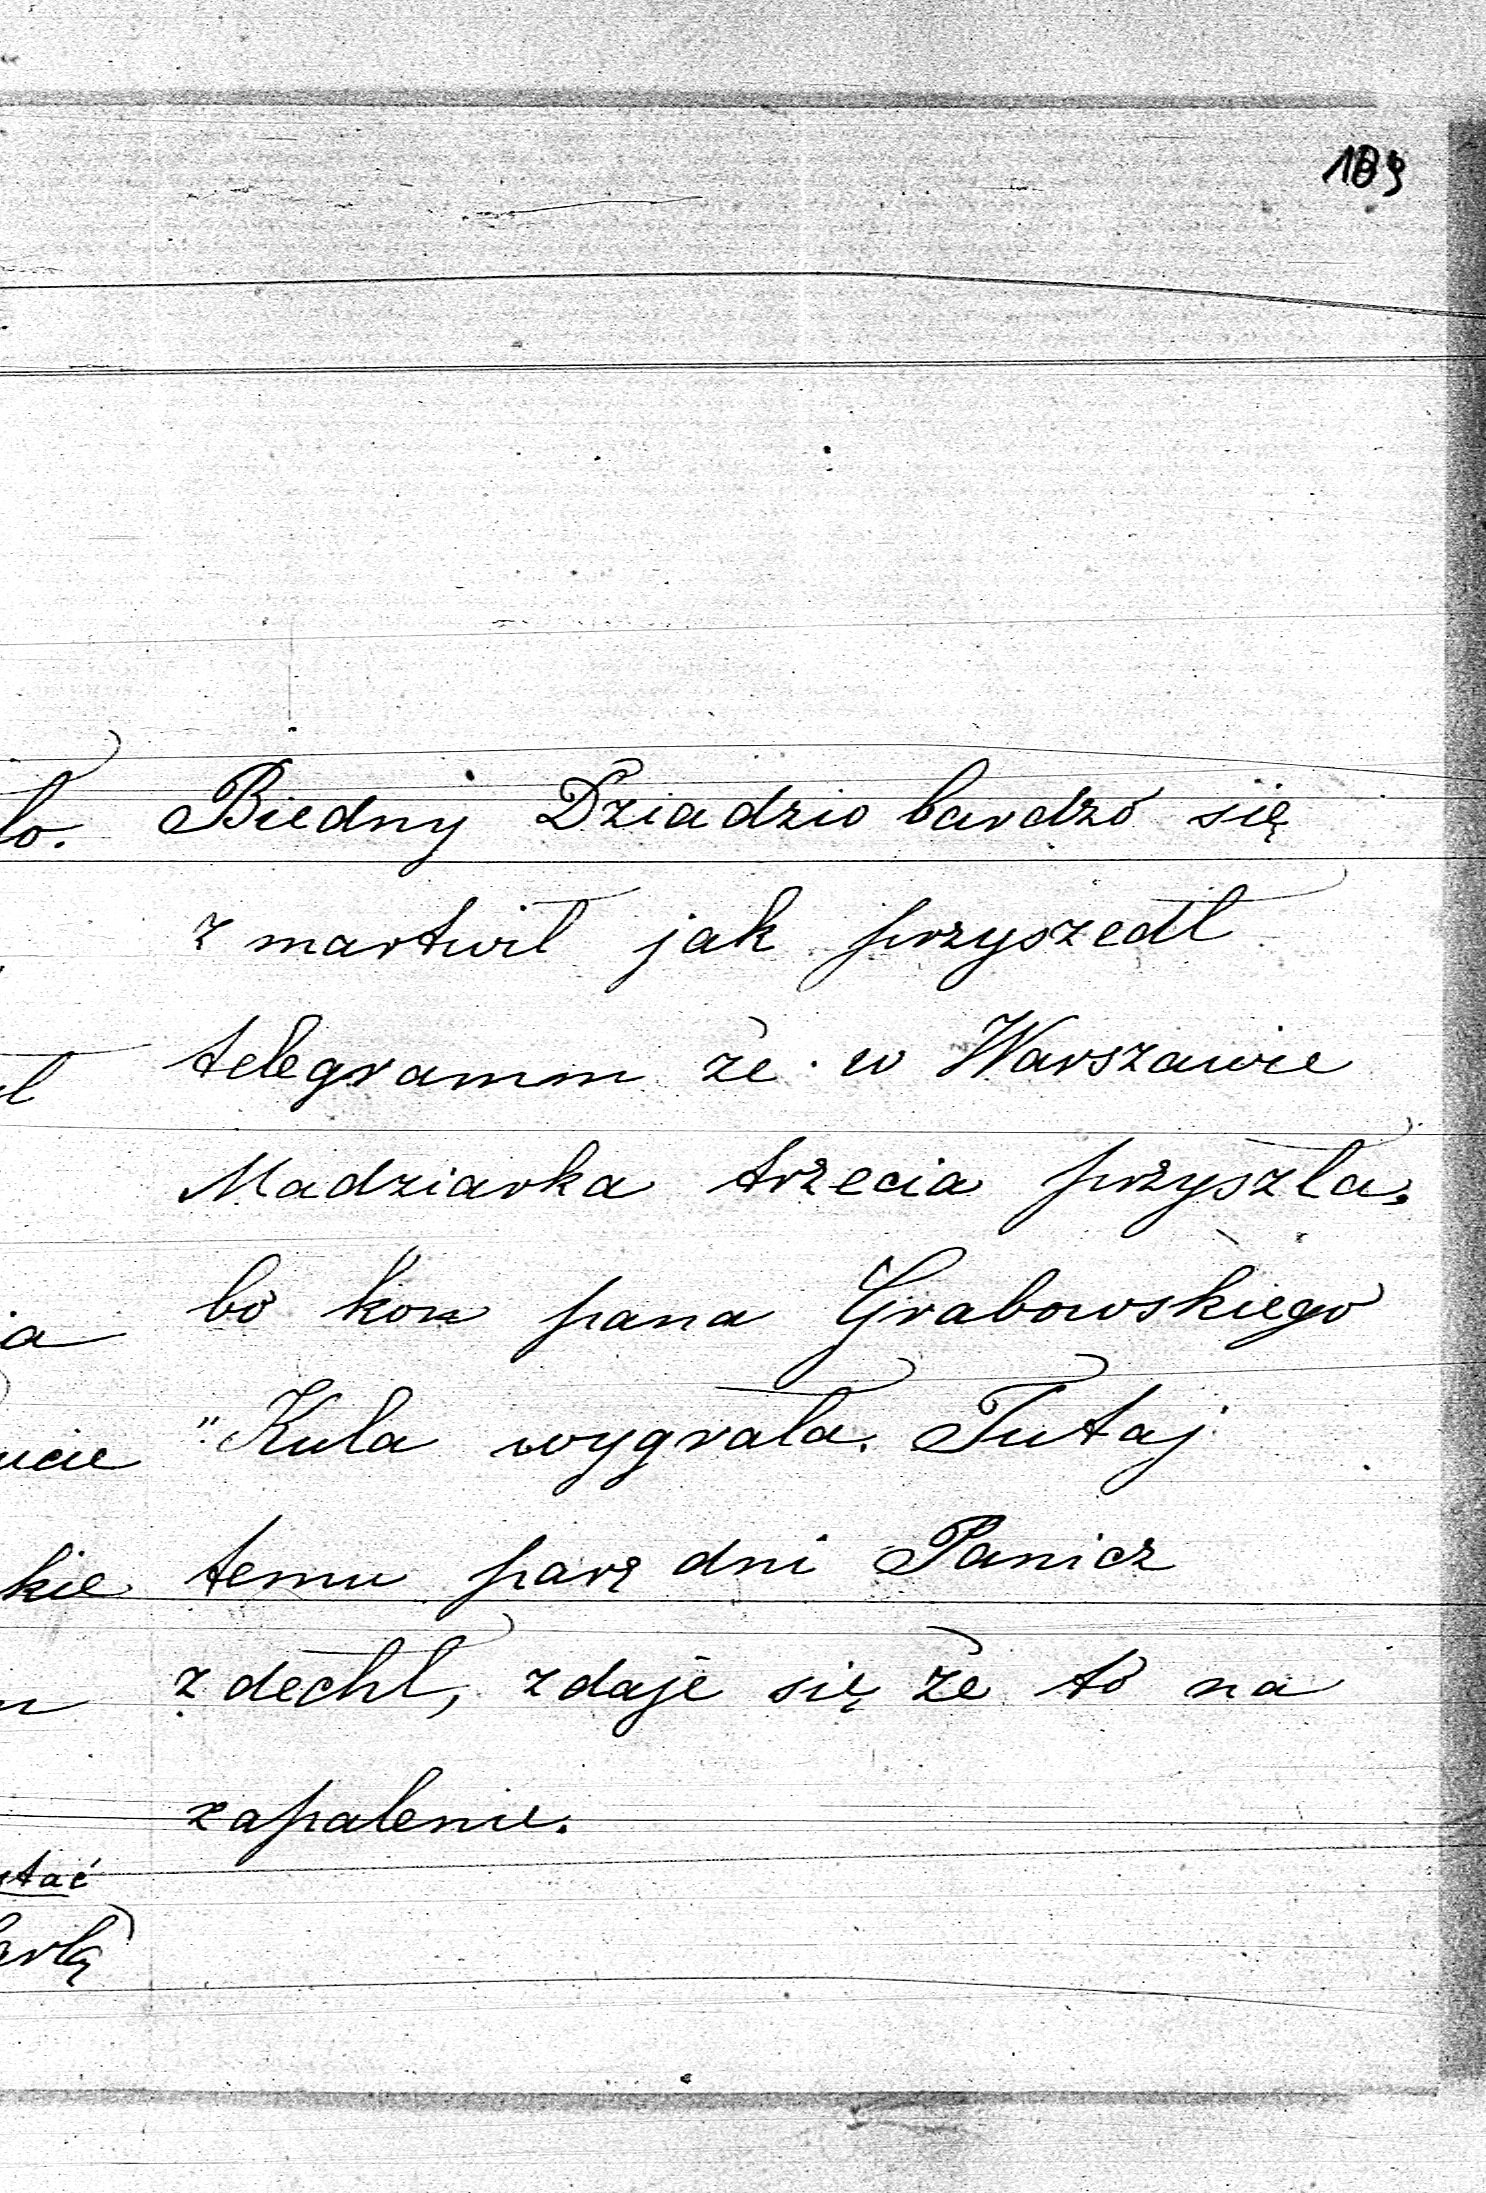 189
Biedny Dziadzio bardzo się
zmartwił jak przyszedł
telegramm że w Warszawie
Madziarka trzecia przyszła,
bo kon pana Grabowskiego
"Kula wygrała. Tutaj
temu parę dni Panicz
zdechł, zdaje się że to na
zapalenie.